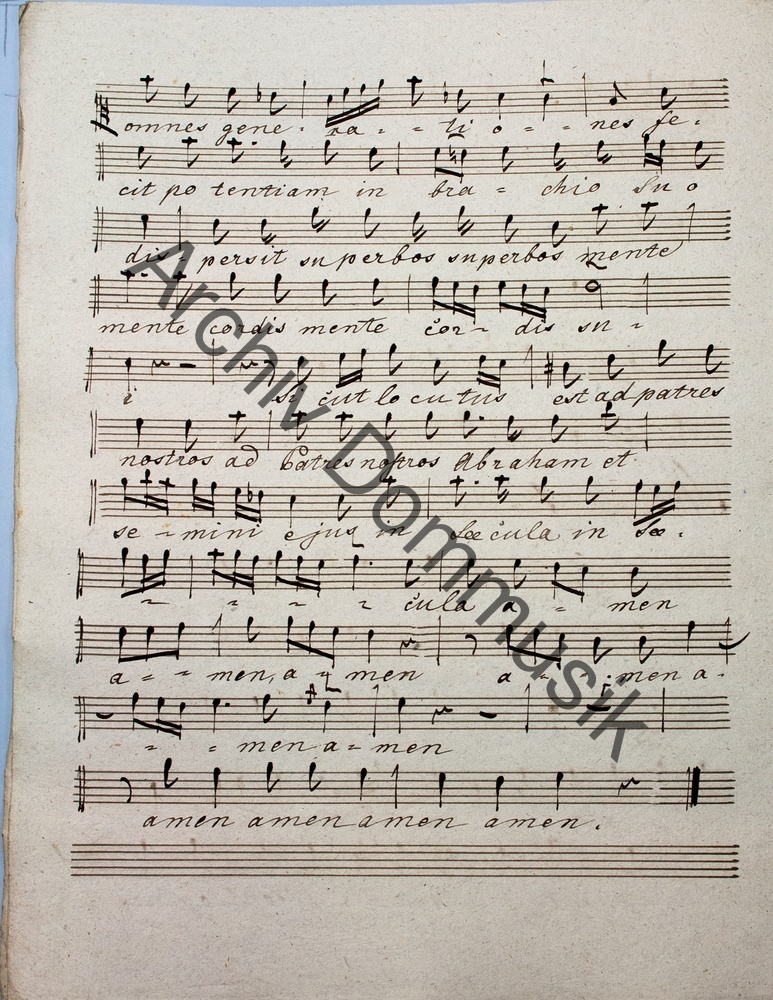 omnes gene - ra - - ti o - - nes fe -
cit po tentiam in bra - chio Su o
dis - persit superbos superbos mente
mente cordis mente cor - dis su -
i si cut lo cu tus est ad patres
nostros ad Patres nostros Abraham et
se - mini ejus in sæcula in sæ -
- - - - cula a - men
a - - men, a - men a - - men a -
- - men a - men
amen amen amen amen.
Archiv Dommusik